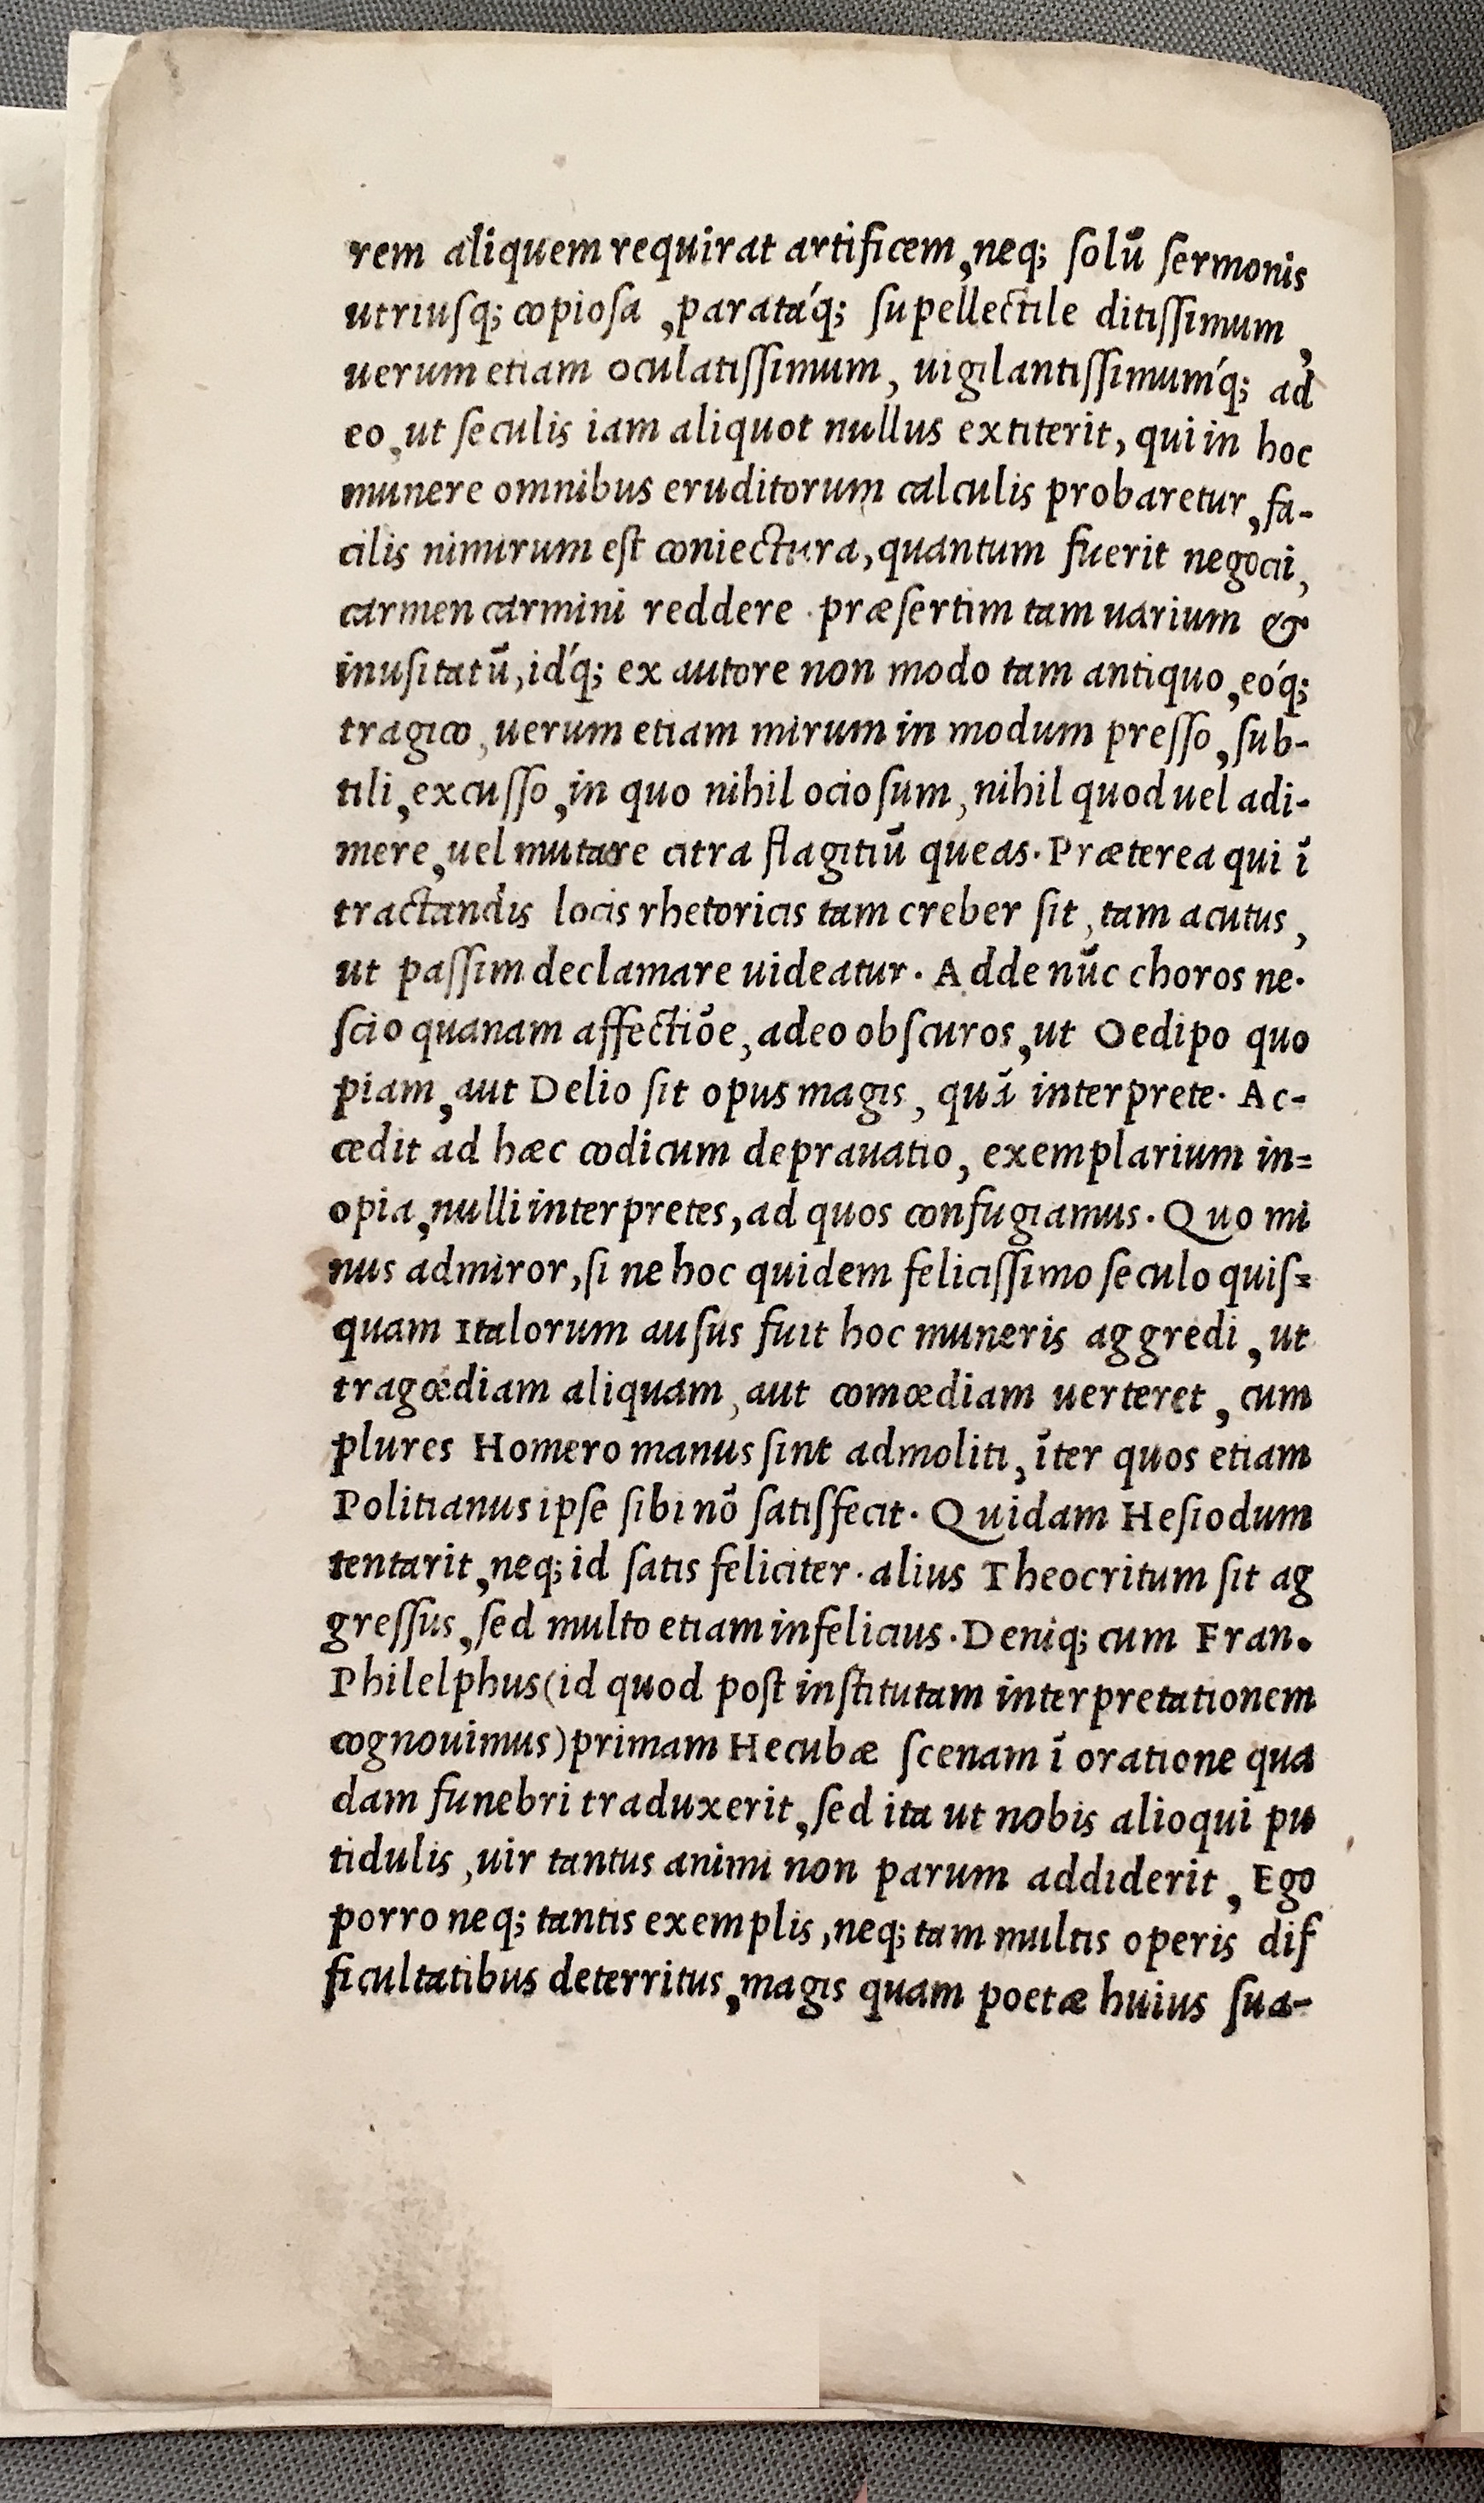 rem aliquem requirat artificem, neq; ſolū ſermonis
utriuſq; copioſa, paratáq; ſupellectile ditiſſimum,
uerum etiam oculatiſſimum, uigilantiſſimumq́; ad
eo, ut ſeculis iam aliquot nullus extiterit, qui in hoc
munere omnibus eruditorum calculis probaretur, fa-
cilis nimirum eſt coniectura, quantum fuerit negocii,
carmen carmini reddere. præſertim tam uarium &
inuſitatū, idq́; ex autore non modo tam antiquo, eóq;
tragico, uerum etiam mirum in modum preſſo, ſub-
tili, excuſſo, in quo nihil ocioſum, nihil quod uel adi-
mere, uel mutare citra flagitiū queas. Præterea qui ī
tractandis locis rhetoricis tam creber ſit, tam acutus,
ut paſſim declamare uideatur. Adde nūc choros ne-
ſcio quanam affectiōe, adeo obſcuros, ut Oedipo quo
piam, aut Delio ſit opus magis, quā interprete. Ac-
cedit ad hæc codicum deprauatio, exemplarium in=
opia, nulli interpretes, ad quos confugiamus. Quo mi
nus admiror, ſi ne hoc quidem feliciſſimo ſeculo quiſ=
quam Italorum auſus fuit hoc muneris aggredi, ut
tragœdiam aliquam, aut comœdiam uerteret, cum
plures Homero manus ſint admoliti, īter quos etiam
Politianus ipſe ſibi nō ſatiſfecit. Quidam Heſiodum
tentarit, neq; id ſatis feliciter. alius Theocritum ſit ag
greſſus, ſed multo etiam infelicius. Deniq; cum Fran.
Philelphus(id quod poſt inſtitutam interpretationem
cognouimus)primam Hecubæ ſcenam ī oratione qua
dam funebri traduxerit, ſed ita ut nobis alioqui pu
tidulis, uir tantus animi non parum addiderit, Ego
porro neq; tantis exemplis, neq; tam multis operis dif
ficultatibus deterritus, magis quam poetæ huius ſua-